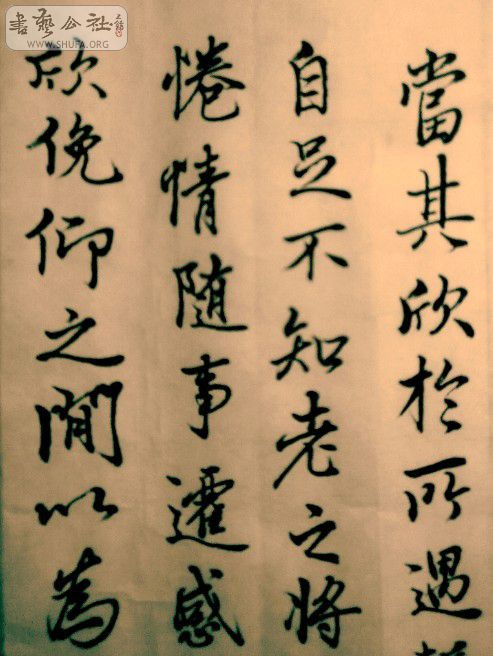 當其欣於所遇
自足不知老之將
惓情随事遷感
欣俛仰之閒以為
書藝公社
WWW.SHUFA.ORG